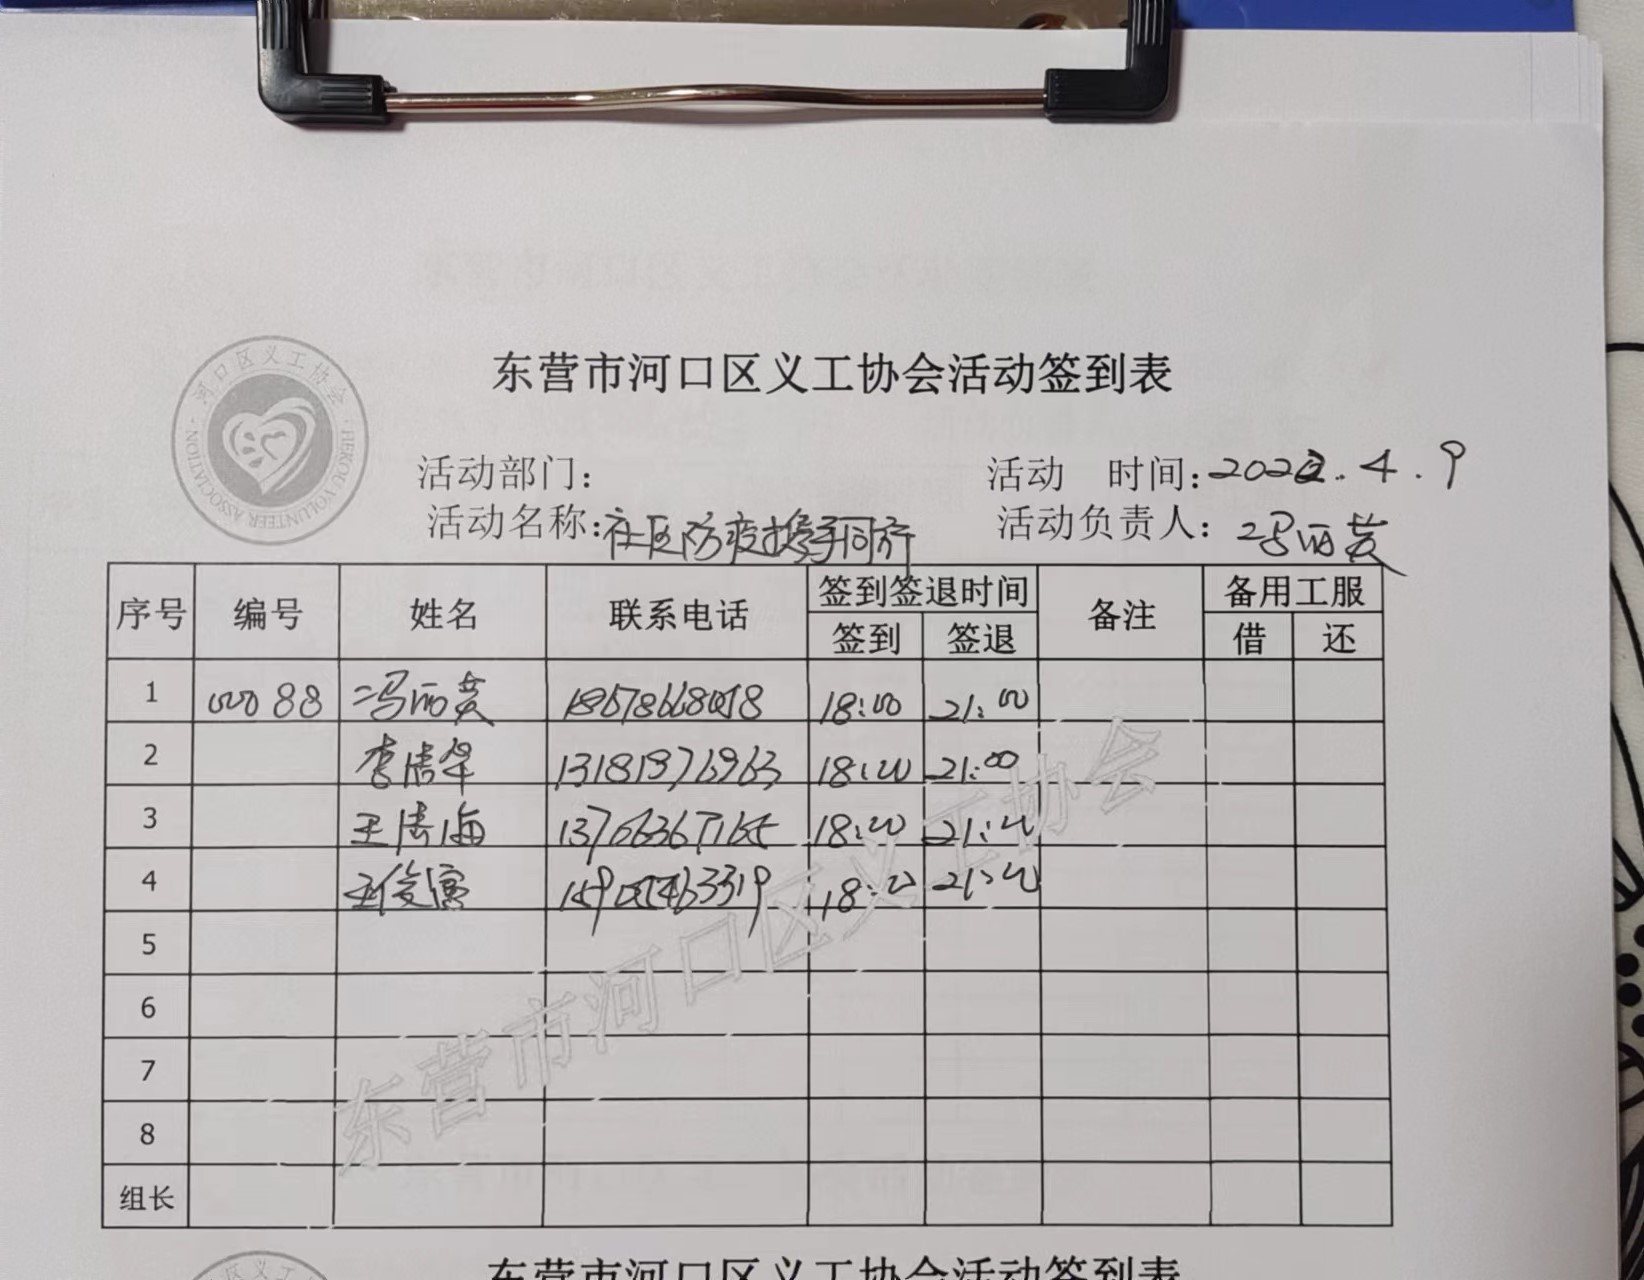 河口区义工协会
HEKOU VOLUNTEER ASSOCIATION
东营市河口区义工协会活动签到表
活动部门: 活动 时间:2022.4.9
活动名称:社区防疫携手同行 活动负责人:冯丽英
序号 编号 姓名 联系电话 签到签退时间 备注 备用工服
签到 签退 借 还
1 00088 冯丽英 18:00 21:00
2 李清华 13181976963 18:00 21:00
3 王清海 18:00 21:00
4 王俊 18:00 21:00
5
6
7
8
组长
东营市河口区义工协会
东营市河口区义工协会活动签到表